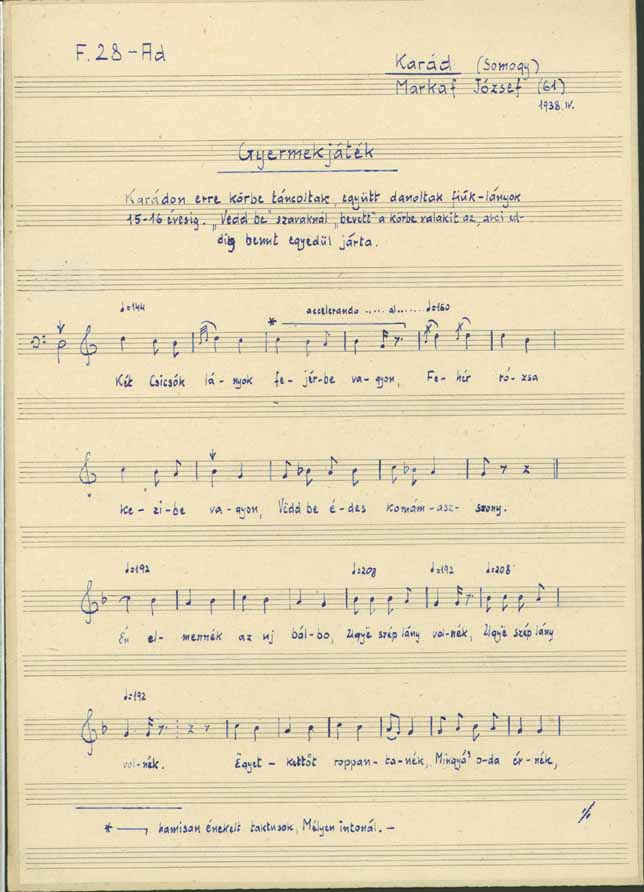 F. 28 - Ad
Karád (Somogy)
Markaf József (61)
1938. IV.
Gyermekjáték
Karádon erre körbe táncoltak, együtt danoltak fiúk-lányok
15-16 évesig. „Vëdd be” szavaknál „bevett” a körbe valakit az, aki ed-
dig bennt egyedül járta.
♩=144 * accelerando ..... al ..... ♩=160
Két Csicsók lá- nyok fe- jér-be va-gyon, Fe- hér ró- zsa
ke- zi-be va-gyon, Vëdd be é-des komám-asz- szony.
♩=192 ♩=208 ♩=192 ♩=208
Én el- mennék az uj bál-bo, Ugyë szép lány vol-nék, Ugyë szép lány
♩=192
vol-nék. Ëgyet- kettőt roppan-ta-nék, Mingyá' o-da ér-nék,
* hamisan énekelt taktusok, Mélyen intonál. —